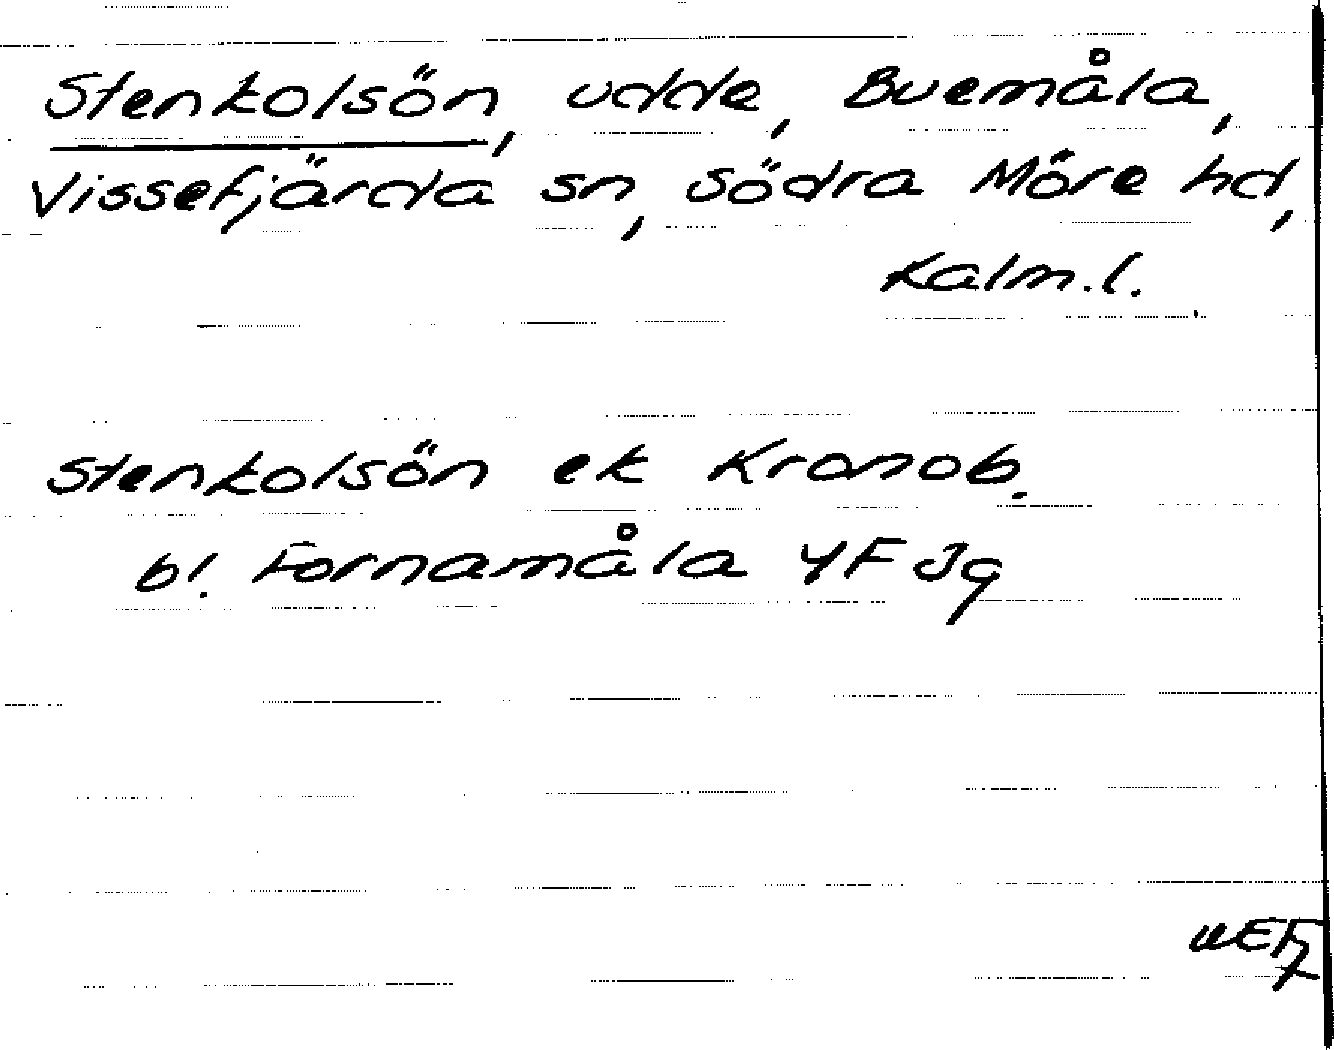 Stenkolsön, udde, Buemåla,
Vissefjärda sn, Södra Möre hd,
Kalm.l.
Stenkolsön ek Kronob.
bl. Fornamåla 4F Jg